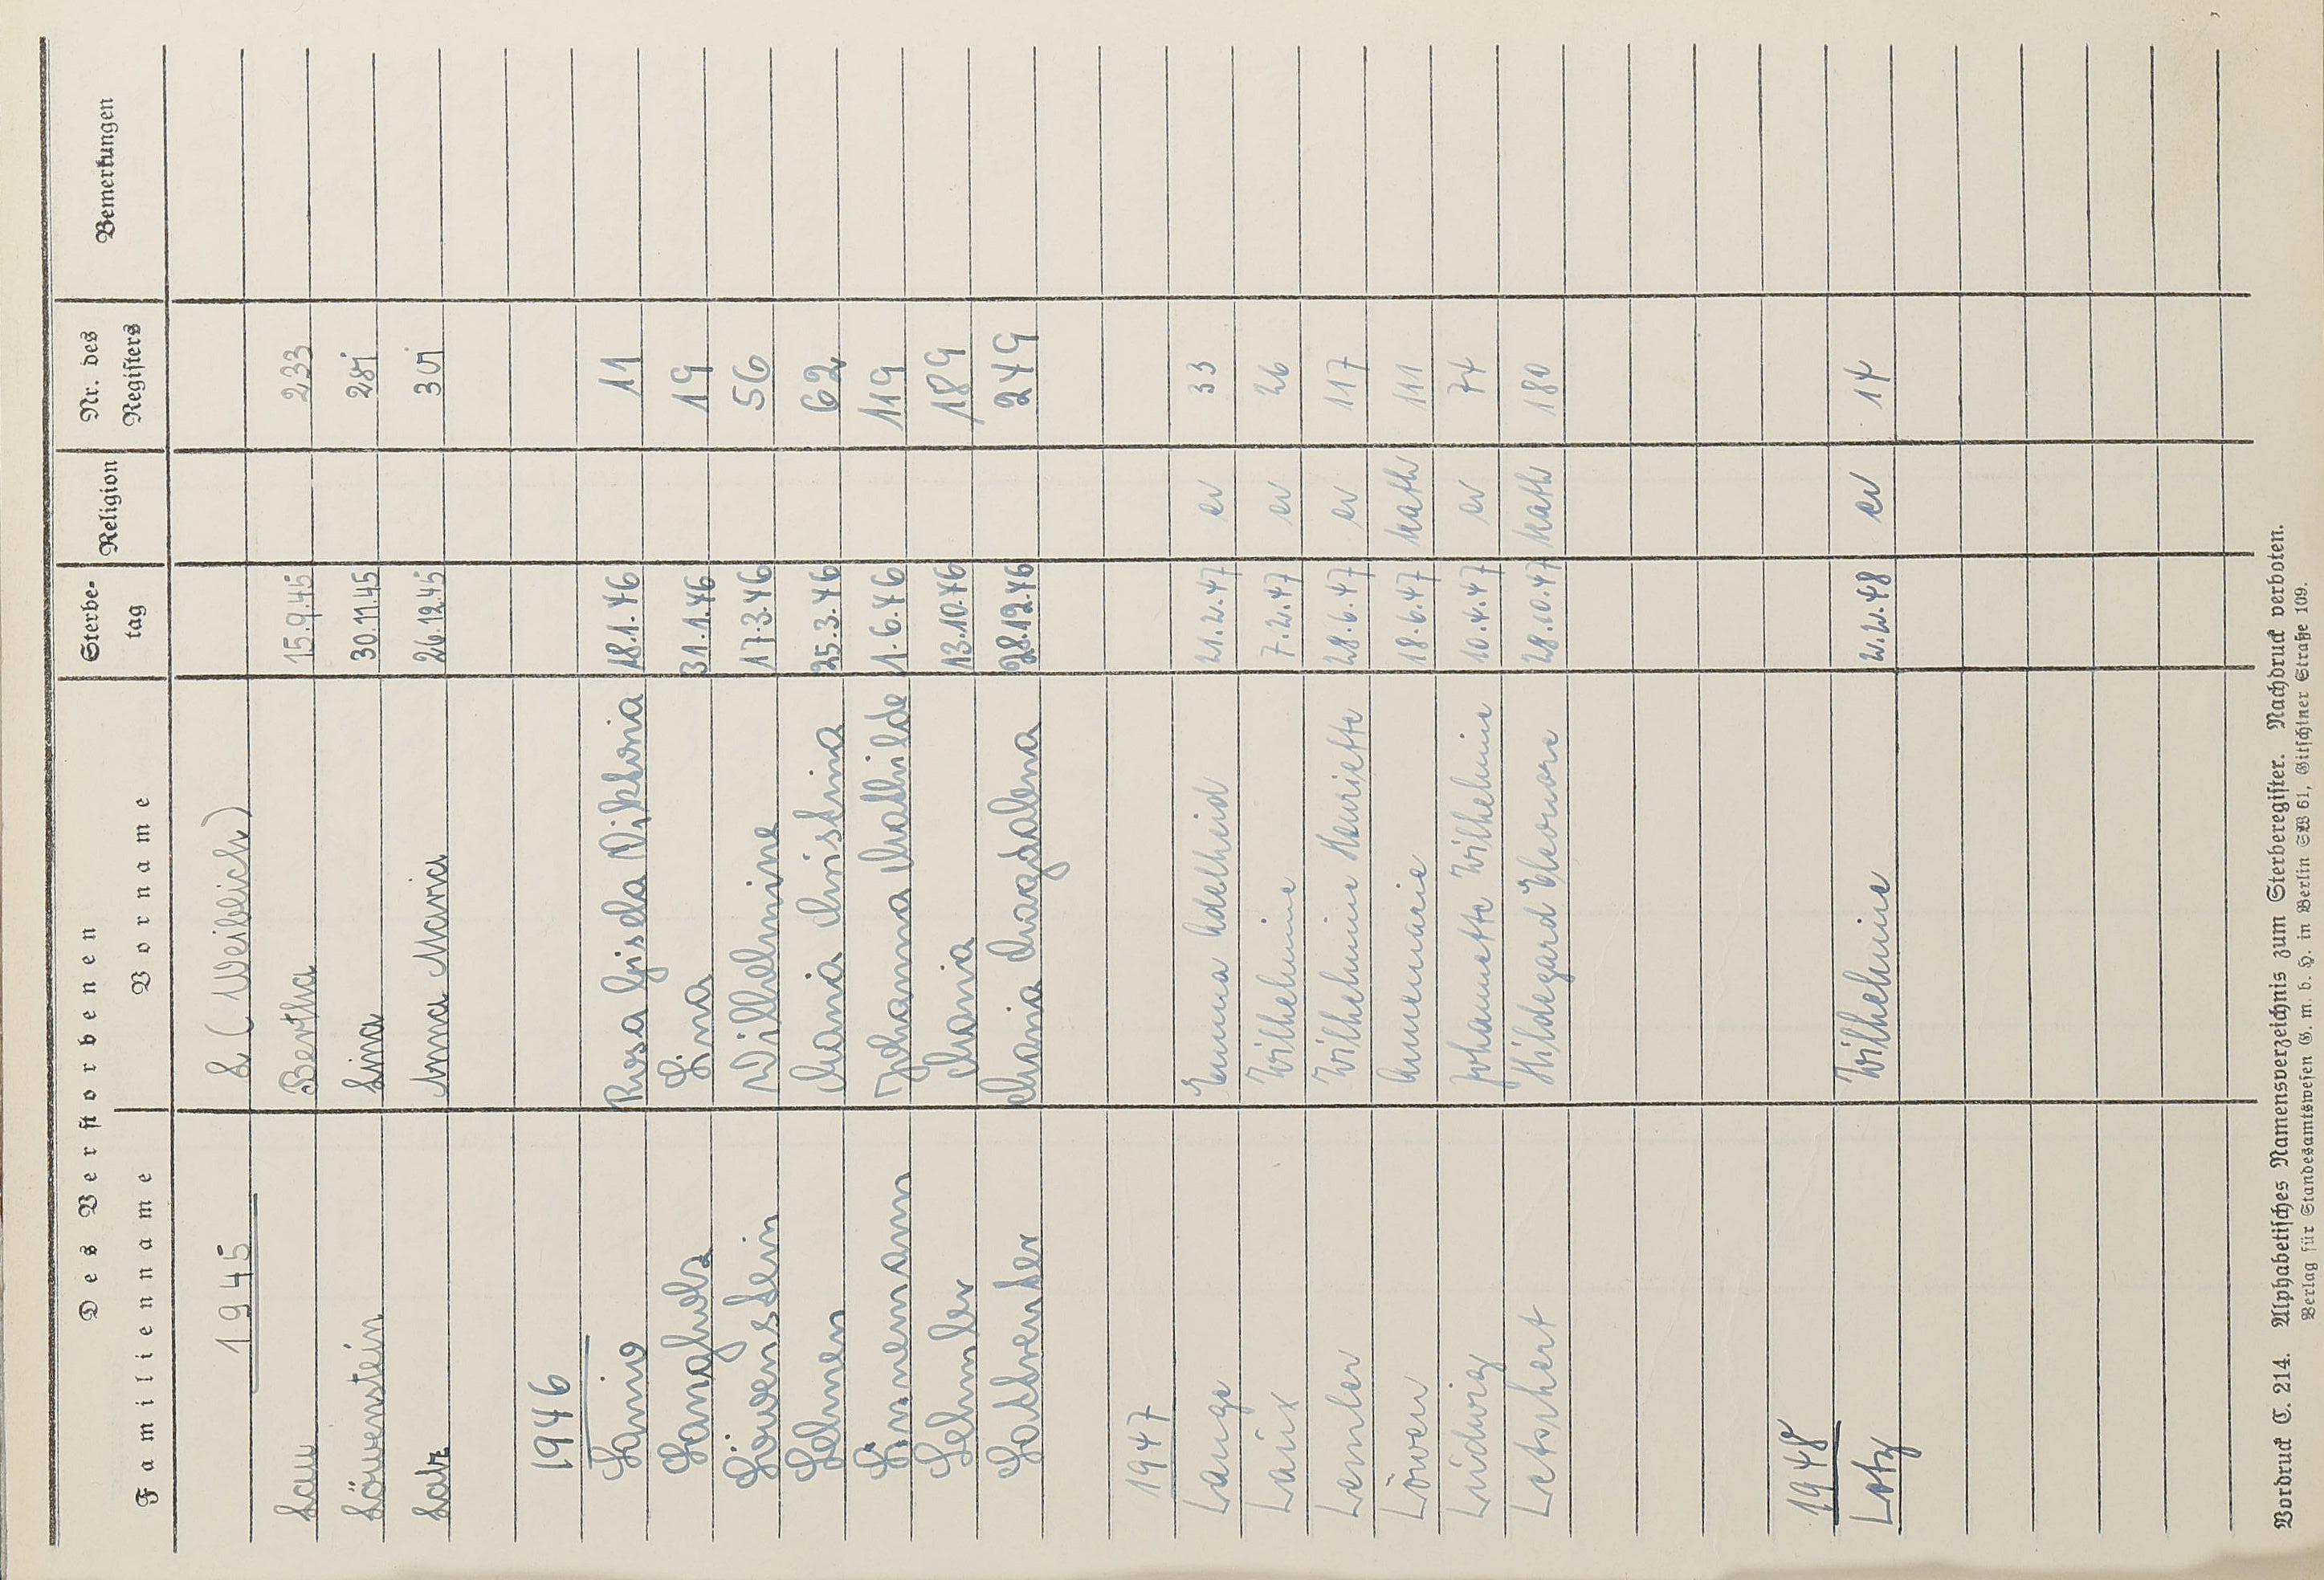 Des Verstorbenen Sterbe- Religion Nr. des Bemerkungen
Familienname Vorname tag Registers
1945 L (Weibeich)
Lau Bertha 15.9.45 233
Löwenstein Lina 30.11.45
Anna Maria 26.12.45
1946
Rosa Gisela Viktoria 18.1.46 11
Langholz Lina 31.1.46 19
Löwenstein Wilhelmine 17.3.46 56
Lehnen Maria Christina 25.3.46 62
Linnemann Johanna Mathilde 1.6.46 119
Lehmler Maria 13.10.46 189
Maria Magdalena 28.12.46 249
1947
Lange Emma Adelheid 21.2.47 ev 33
Laux Wilhelmine 7.2.47 ev 26
Lemler Wilhelmine Henriette 28.6.47 ev 117
Löwen Annemarie 18.6.47 kath 111
Ludwig Johannette Wilhelmine 10.4.47 ev 74
Letschert Hildegard Eleonore 28.10.47 kath 180
1948
Lotz Wilhelmine 2.2.48 ev 14
Vordruck C. 214. Alphabetisches Namensverzeichnis zum Sterberegister. Nachdruck verboten.
Verlag für Standesamtswesen G. m. b. H. in Berlin SW 61, Gitschiner Straße 109.